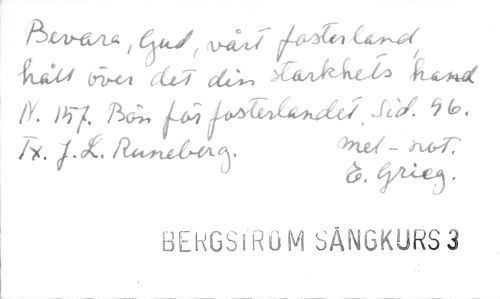 Bevara, Gud, vårt fosterland,
håll över det din starkhets hand
N. 157. Bön för fosterlandet. Sid. 96.
Tx. J. L. Runeberg. Mel-not.
E. Grieg.
BERGSTRÖM SÅNGKURS 3